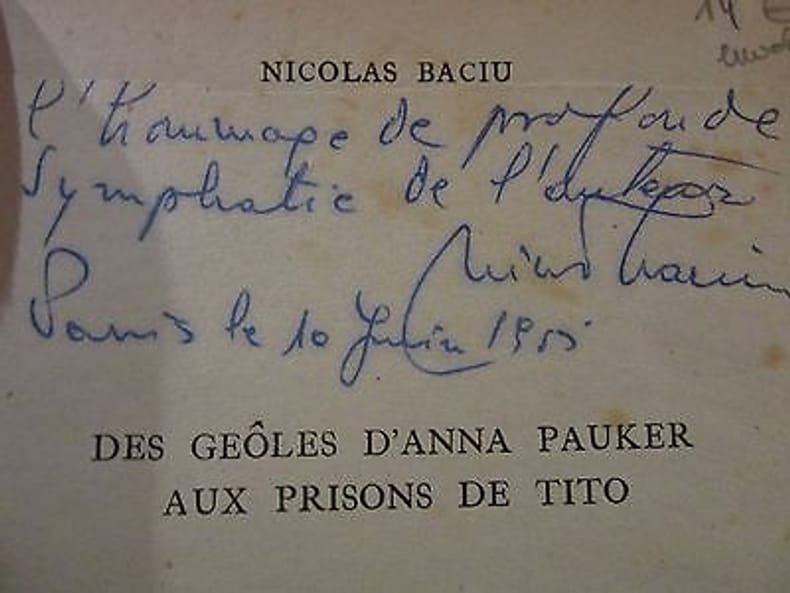 14 €
NICOLAS BACIU
l'hommage de profonde
symphatie de l'auteur
Paris le 10 Juin 1955
DES GEÔLES D'ANNA PAUKER
AUX PRISONS DE TITO